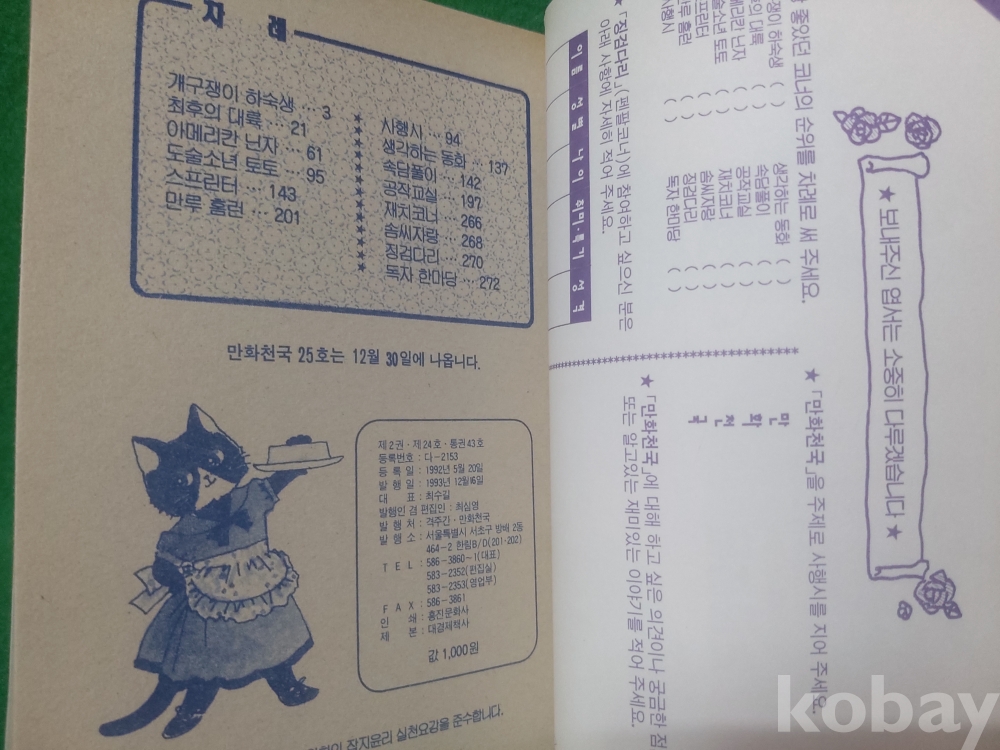 차 례
개구쟁이 하숙생 … 3
최후의 대륙 … 21
아메리칸 닌자 … 61
도술소년 토토 … 95
스프린터 … 143
만루 홈런 … 201
★★★★★★★★★★★★★★
사행시 … 94
생각하는 동화 … 137
속담풀이 … 142
공작교실 … 197
재치코너 … 266
솜씨자랑 … 268
징검다리 … 270
독자 한마당 … 272
만화천국 25호는 12월 30일에 나옵니다.
제 2권 · 제 24호 · 통권 43호
등록번호 : 다-2153
등 록 일 : 1992년 5월 20일
발 행 일 : 1993년 12월 16일
대 표 : 최수길
발행인 겸 편집인 : 최심영
발 행 처 : 격주간 · 만화천국
발 행 소 : 서울특별시 서초구 방배 2동
464-2 한림B/D(201·202)
T E L : 586-3860~1(대표)
583-2352(편집실)
583-2353(영업부)
F A X : 586-3861
인 쇄 : 홍진문화사
제 본 : 대경제책사
값 1,000원
잡지윤리 실천요강을 준수합니다.
★ 보내주신 엽서는 소중히 다루겠습니다 ★
좋았던 코너의 순위를 차례로 써 주세요.
쟁이 하숙생 ( )
의 대륙 ( )
메리칸 닌자 ( )
술소년 토토 ( )
프린터 ( )
루 홈런 ( )
사행시 ( )
생각하는 동화 ( )
속담풀이 ( )
공작교실 ( )
재치코너 ( )
솜씨자랑 ( )
징검다리 ( )
독자 한마당 ( )
★ 「징검다리」(펜팔코너)에 참여하고 싶으신 분은
아래 사항에 자세히 적어 주세요.
이 름 성 별 나 이 취미·특기 성 격
★ 「만화천국」을 주제로 사행시를 지어 주세요.
만
화
천
국
★ 「만화천국」에 대해 하고 싶은 의견이나 궁금한 점
또는 알고있는 재미있는 이야기를 적어 주세요.
kobay